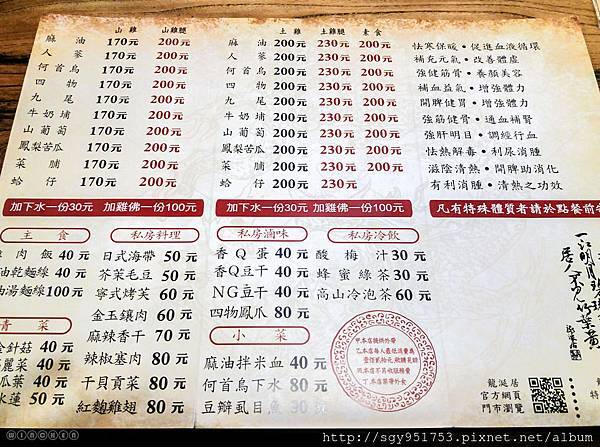 山雞 山雞腿
麻油 170元 200元
人蔘 170元 200元
何首烏 170元 200元
四物 170元 200元
九尾 170元 200元
牛奶埔 170元 200元
山葡萄 170元 200元
鳳梨苦瓜 170元 200元
菜脯 170元 200元
蛤仔 170元 200元
土雞 土雞腿 素食
麻油 200元 230元 200元
人蔘 200元 230元 200元
何首烏 200元 230元 200元
四物 200元 230元 200元
九尾 200元 230元 200元
牛奶埔 200元 230元 200元
山葡萄 200元 230元 200元
鳳梨苦瓜 200元 230元 200元
菜脯 200元 230元 200元
蛤仔 200元 230元
怯寒保暖・促進血液循環
補充元氣・改善體虛
強健筋骨・養顏美容
補血益氣・增強體力
開脾健胃・增強體力
強筋健骨・通血補腎
強肝明目・調經行血
怯熱解毒・利尿消腫
滋陰清熱・開脾助消化
有利消腫・清熱之功效
加下水一份30元 加雞佛一份100元
加下水一份30元 加雞佛一份100元
凡有特殊體質者請於點餐前
主食
肉飯 40元
油乾麵線 40元
油湯麵線 100元
青菜
金針菇 40元
麗菜 40元
瓜葉 40元
水蓮 50元
私房料理
日式海帶 50元
芥茉毛豆 50元
寧式烤芙 60元
金玉鑲肉 60元
麻辣香干 70元
辣椒塞肉 80元
干貝貢菜 80元
紅麴雞翅 80元
私房滷味
香Q蛋 40元
香Q豆干 40元
NG豆干 40元
四物鳳爪 80元
小菜
麻油拌米血 40元
何首烏下水 80元
豆瓣虱目魚 30元
私房冷飲
酸梅汁 30元
蜂蜜綠茶 30元
高山冷泡茶 60元
龍涎居
官方網頁
門市瀏覽
WINCHEN
http://sgy951753.pixnet.net/album